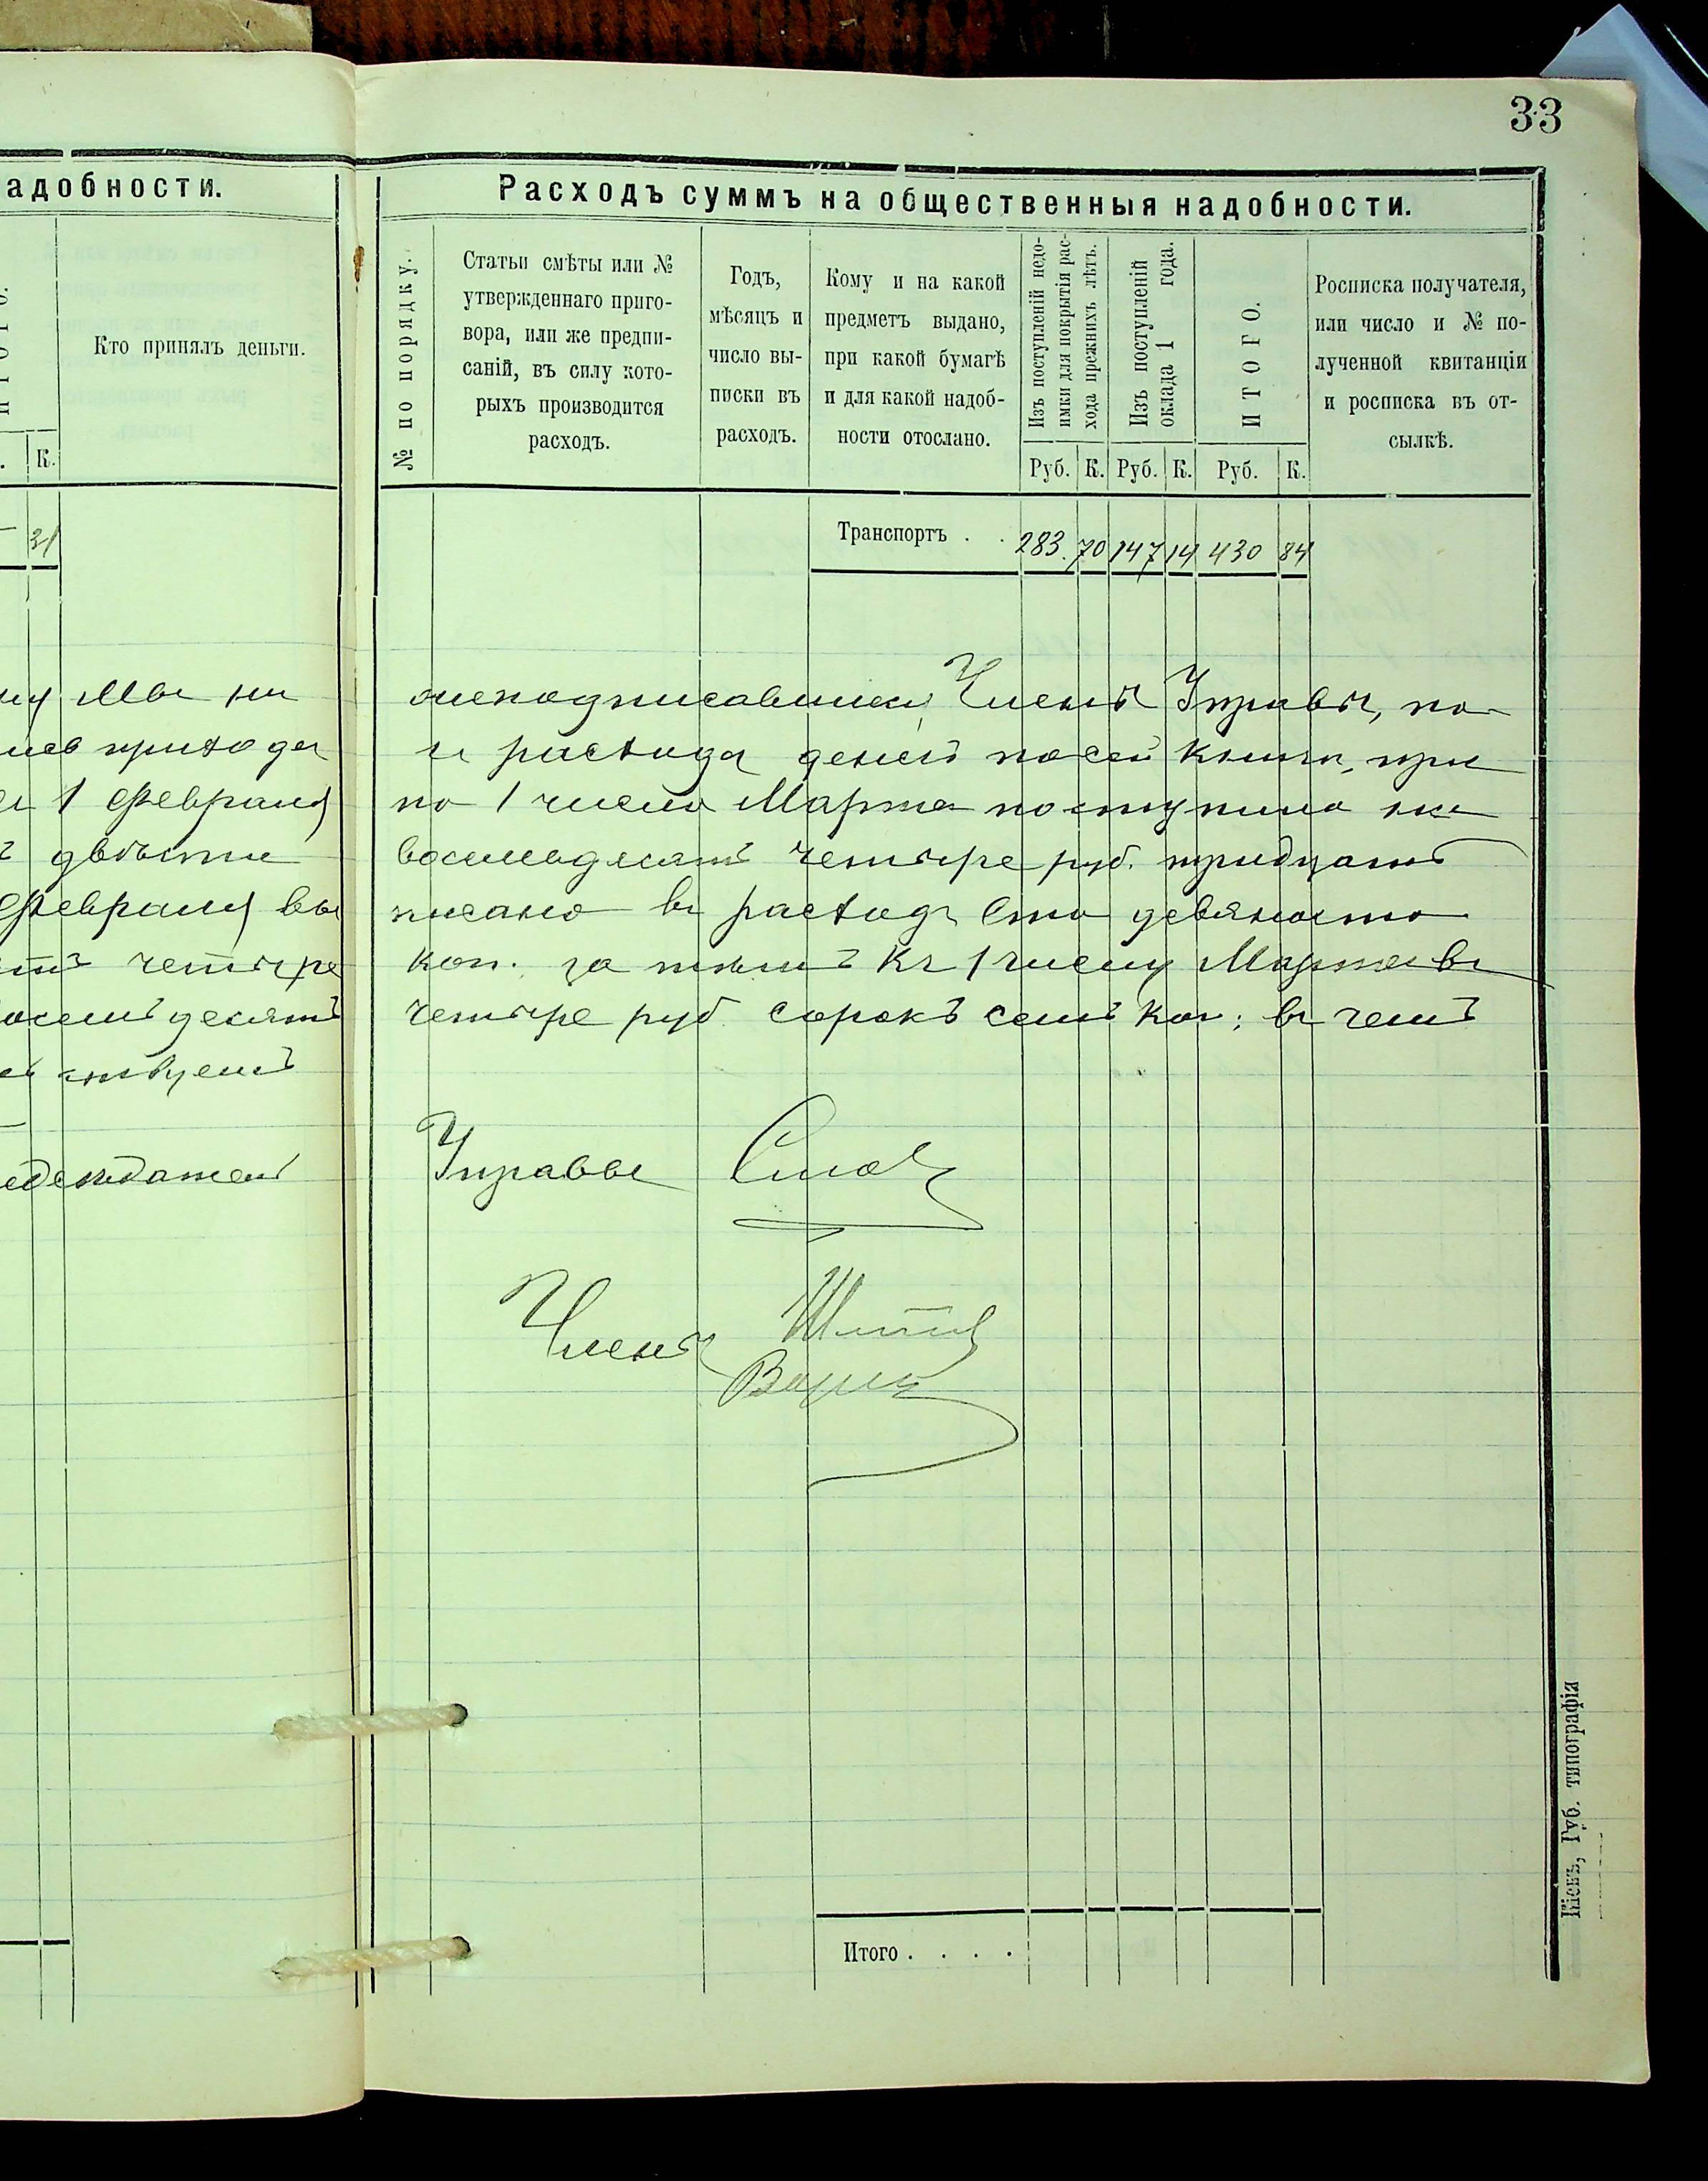 33
адобности.
Кто принялъ деньги.
К.
31
му Мы ни
1 Февраля
двѣсти
Февраля вы
четыре
восемьдесятъ
Расходъ суммъ на общественныя надобности.
№ по порядку.
Статьи смѣты или №
утвержденнаго приго-
вора, или же предпи-
саній, въ силу кото-
рыхъ производится
расходъ.
Годъ,
мѣсяцъ и
число вы-
писки въ
расходъ.
Кому и на какой
предметъ выдано,
при какой бумагѣ
и для какой надоб-
ности отослано.
Изъ поступленій недо-
имки для покрытія рас-
хода прежнихъ лѣтъ.
Изъ поступленій
оклада 1 года.
ИТОГО.
Росписка получателя,
или число и № по-
лученной квитанціи
и росписка въ от-
сылкѣ.
Руб. К. Руб. К. Руб. К.
Транспортъ . . 283. 70 147 14 430 84
женодписавшіеся Члены Управы, по-
и расхода денегъ по сей книги, при
по 1 число Марта поступило на
восемьдесятъ четыре руб. тридцать
писано въ расходъ Сто девяносто
коп. за тѣмъ Къ 1 числу Марта въ
четыре руб. сорокъ семь коп; въ чемъ
Управы
Члены
Итого . . . .
Кіевъ, Губ. типографія